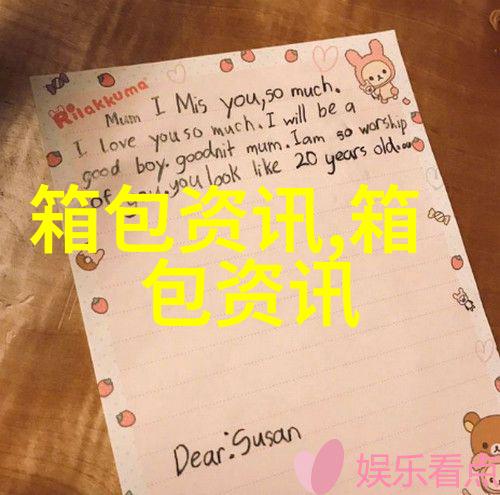 Rilakkuma
Mum I Mis you, so much.
I love you so much. I will be a
good boy. goodnit mum. I am so worship
of you. you look like 20 years old...
箱包资讯,箱
包资讯
Dear: Susan
娱乐看点